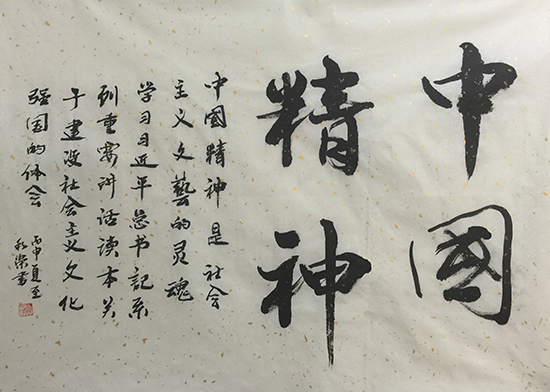 中國
精神
中國精神是社会
主义文藝的灵魂
学习习近平总书记系
列重要讲话读本关
于建设社会主义文化
强国的体会
丙申夏至
荣書